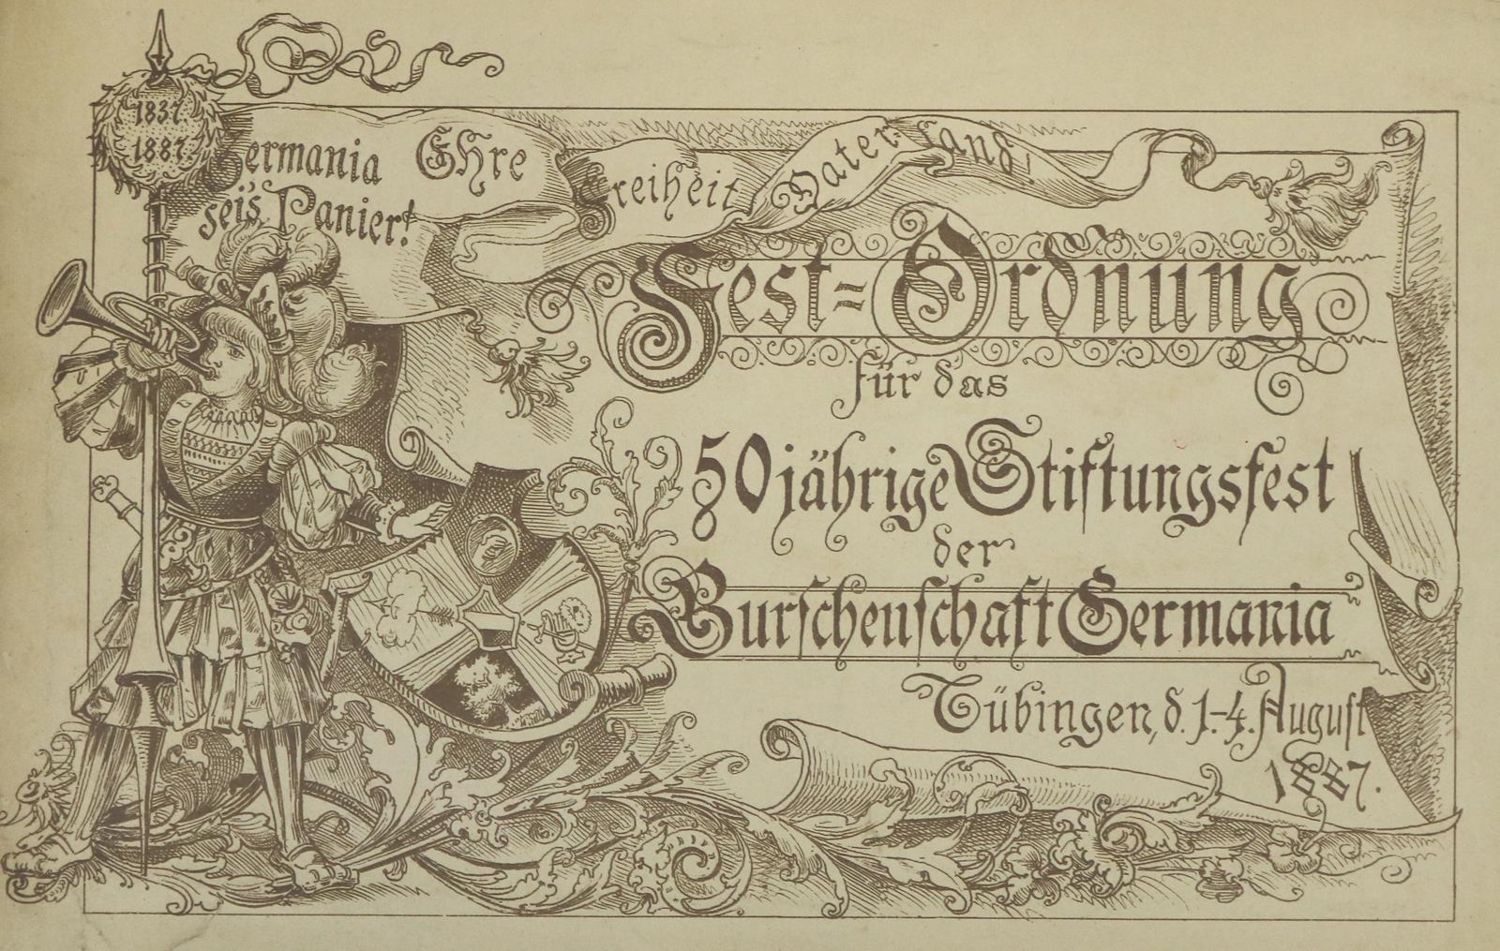 1837
1887
Germania
sei's Panier!
Ehre
Freiheit
Vaterland
Fest=Ordnung
für das
50jährige Stiftungsfest
der
Burschenschaft Germania
Tübingen, d. 1-4. August
1887.